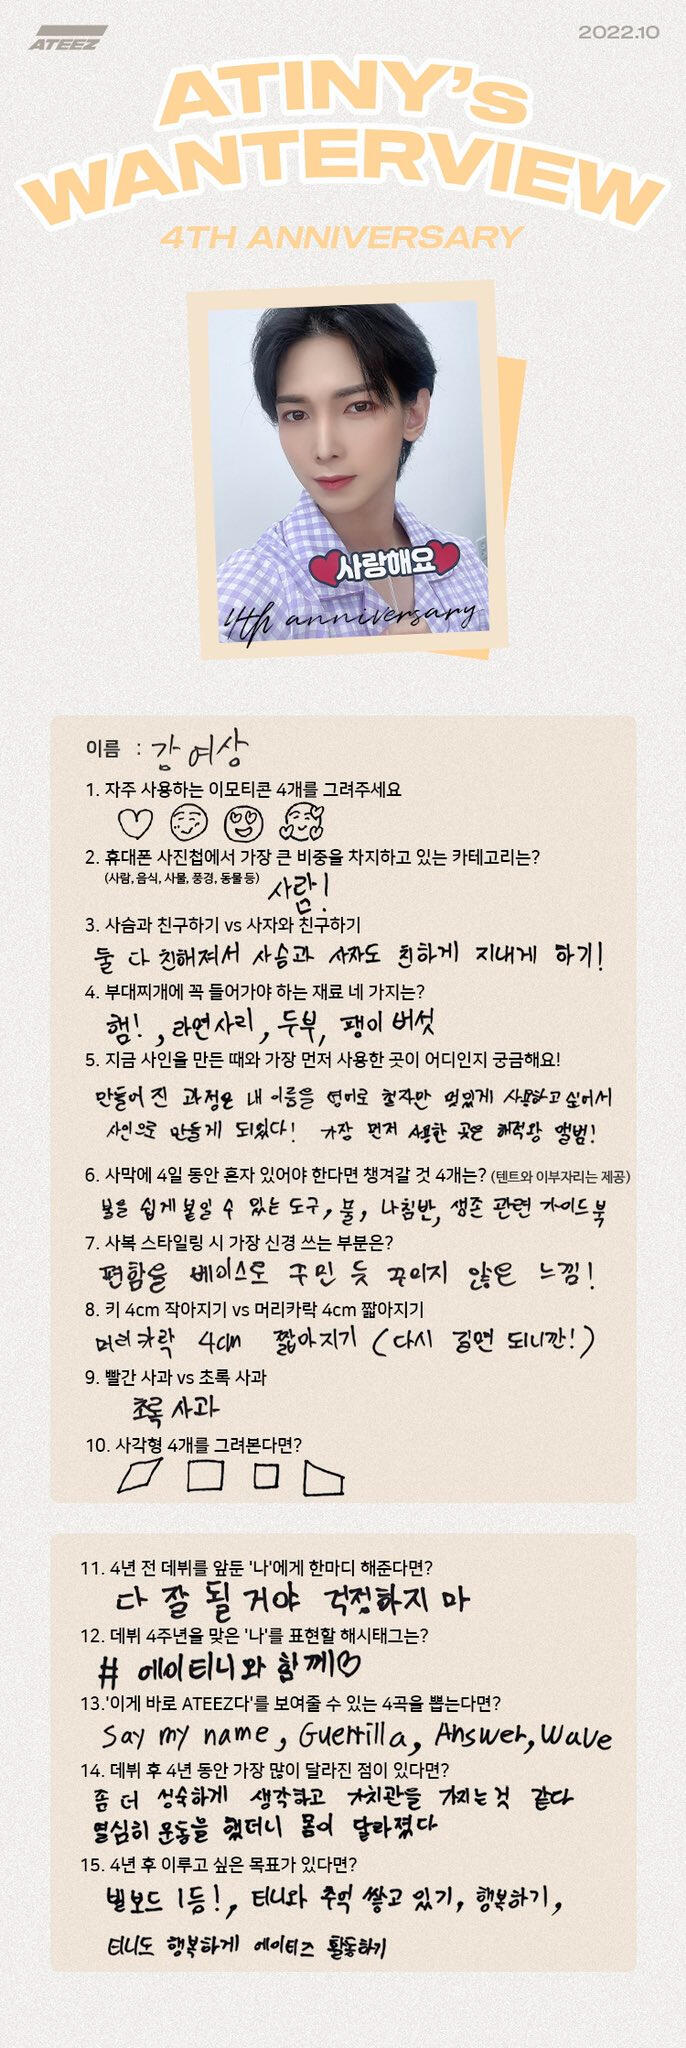 ATEEZ
2022.10
ATINY's
WANTERVIEW
4TH ANNIVERSARY
사랑해요
4th anniversary
이름 : 강여상
1. 자주 사용하는 이모티콘 4개를 그려주세요
2. 휴대폰 사진첩에서 가장 큰 비중을 차지하고 있는 카테고리는?
(사람, 음식, 사물, 풍경, 동물 등) 사람!
3. 사슴과 친구하기 vs 사자와 친구하기
둘 다 친해져서 사슴과 사자도 친하게 지내게 하기!
4. 부대찌개에 꼭 들어가야 하는 재료 네 가지는?
햄!, 라면사리, 두부, 팽이버섯
5. 지금 사인을 만든 때와 가장 먼저 사용한 곳이 어디인지 궁금해요!
만들어 진 과정은 내 이름을 영어로 철자만 멋있게 사용하고 싶어서
사인으로 만들게 되었다! 가장 먼저 사용한 곳은 해적왕 앨범!
6. 사막에 4일 동안 혼자 있어야 한다면 챙겨갈 것 4개는? (텐트와 이부자리는 제공)
불을 쉽게 붙일 수 있는 도구, 물, 나침반, 생존 관련 가이드북
7. 사복 스타일링 시 가장 신경 쓰는 부분은?
편함을 베이스로 꾸민 듯 꾸미지 않은 느낌!
8. 키 4cm 작아지기 vs 머리카락 4cm 짧아지기
머리카락 4cm 짧아지기 (다시 길면 되니깐!)
9. 빨간 사과 vs 초록 사과
초록 사과
10. 사각형 4개를 그려본다면?
11. 4년 전 데뷔를 앞둔 '나'에게 한마디 해준다면?
다 잘 될 거야 걱정하지 마
12. 데뷔 4주년을 맞은 '나'를 표현할 해시태그는?
# 에이티니와 함께♡
13.'이게 바로 ATEEZ다'를 보여줄 수 있는 4곡을 뽑는다면?
Say my name, Guerrilla, Answer, Wave
14. 데뷔 후 4년 동안 가장 많이 달라진 점이 있다면?
좀 더 성숙하게 생각하고 가치관을 가지는 것 같다
열심히 운동을 했더니 몸이 달라졌다
15. 4년 후 이루고 싶은 목표가 있다면?
빌보드 1등!, 티니와 추억 쌓고 있기, 행복하기,
티니도 행복하게 에이티즈 활동하기